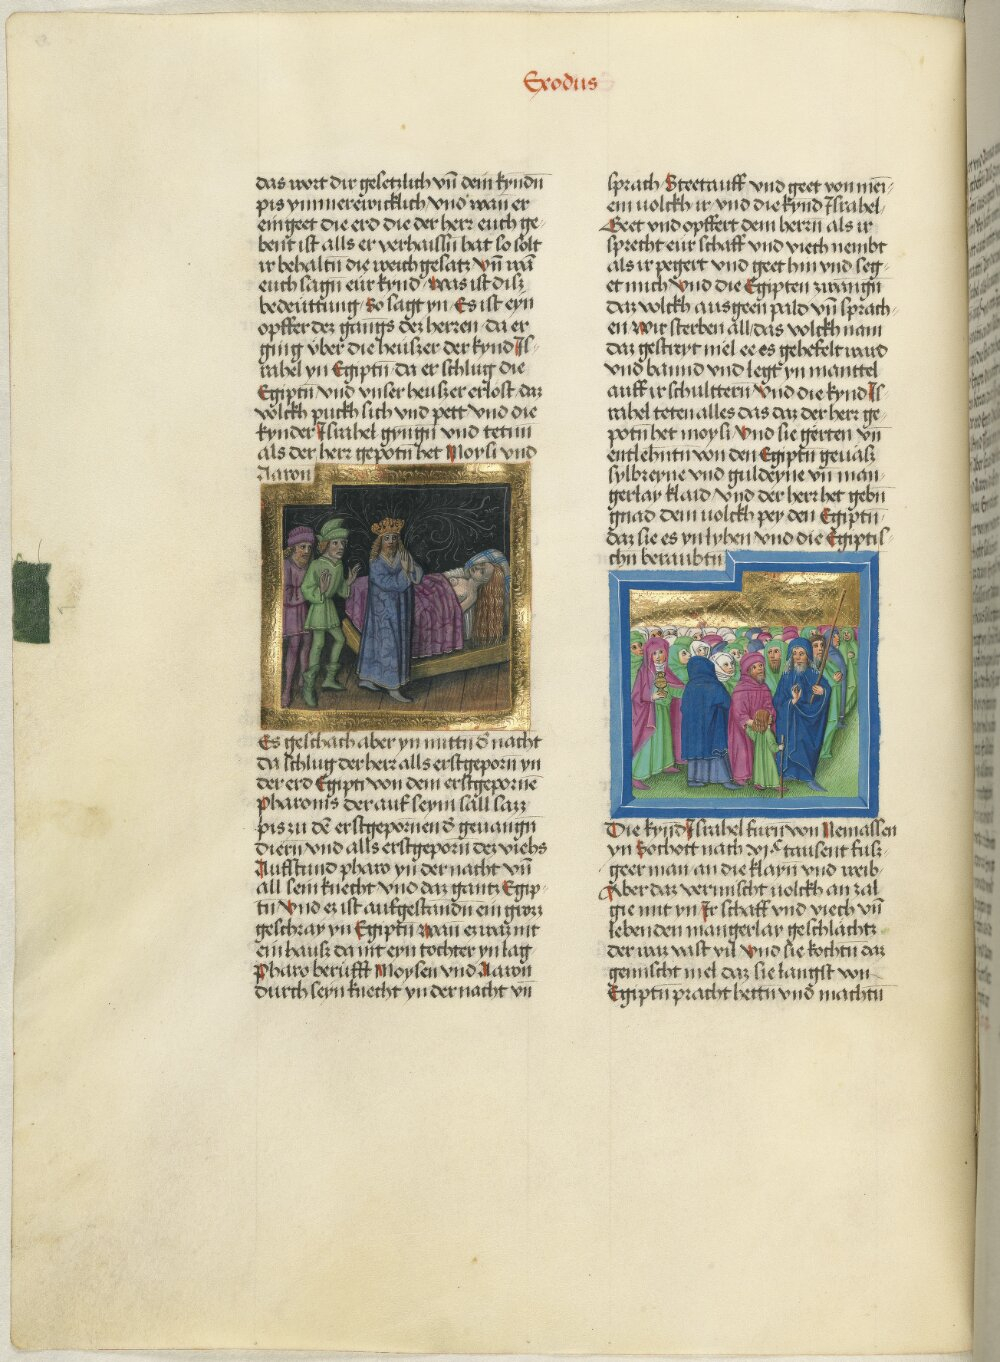 Exodus
das wort dir gesetzlich vn̄ dein kyndn
pis ymmerewicklich vnd wan er
eingeet die erd die der herr euch ge-
bent ist alls er verhaissn hat so solt
ir behaltn die weich gesatz Vn̄ wān
euch sagn eur kynd Was ist disz
bedeuttung So sagt yn Es ist eyn
opffer dez gangs dez herren da er
ging vber die heuszer der kynd Is-
rahel yn Egiptn da er schlug die
Egiptn vnd vnser heuszer erlost daz
volckh puckh sich vnd pett vnd die
kynder Israhel gyngn vnd tetnn
als der herr gepotn het Moysi vnd
Aaron
Es geschach aber yn mittn d̄ nacht
da schlug der herr alls erstgeporn yn
der erd Egipti von dem erstgeporne
Pharonis der auf seym sall sazz
pis zu dē erstgepornen d̄ geuangn
diern vnd alls erstgeporn dez viehs
Aufstund pharo yn der nacht vn̄
all sein knecht vnd daz gantz Egip-
tn Vnd ez ist aufgestandn ein grozz
geschray yn Egiptn Wan er waz nit
ein hausz da nit eyn tochter yn lag
Pharo berufft Moysen vnd Aaron
durch seyn knecht yn der nacht vn̄
sprach Steet auff vnd geet von mei-
em uolckh ir vnd die kynd Israhel
Geet vnd opffert dem herrn als ir
sprecht eur schaff vnd viech nembt
als ir pegert vnd geet hin vnd seg-
et mich Vnd die Egipten zwangn
daz volckh ausgeen pald vn̄ sprach-
en Wir sterben all das volckh nam
daz gestreyt mel ee es gehefelt ward
vnd bannd vnd legt yn manttel
auff ir schulttern Vnd die kynd Is-
rahel teten alles das daz der herr ge-
potn het moysi Vnd sie gerten vn̄
entlehntn von den Egiptn geuasz
sylbreyne vnd guldeyne vn̄ man-
gerlay klaid Vnd der herr het gebn
gnad dem uolckh pey den Egiptn
daz sie es yn lyhen vnd die Egiptis-
chn beraubtn
Die kynd Israhel furn von Remassen
yn Sochott nach vi.c tausent fusz-
geer man an die klayn vnd weib
Aber daz vermischt uolckh an zal
gie mit yn Ir schaff vnd viech vn̄
lebenden mangerlay geschlachtz
der waz vast vil Vnd sie kochtn daz
gemischt mel daz sie langst von
Egiptn pracht hettn vnd machtn